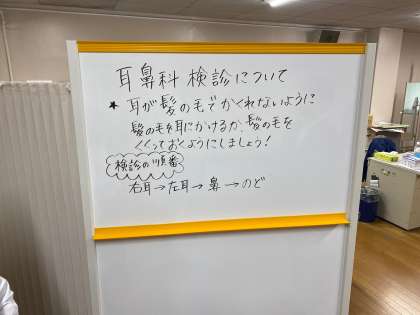 耳鼻科 検診について
★ 耳が髪の毛でかくれないように
髪の毛を耳にかけるか、髪の毛を
くくっておくようにしましょう!
検診の順番
右耳→左耳→鼻→のど